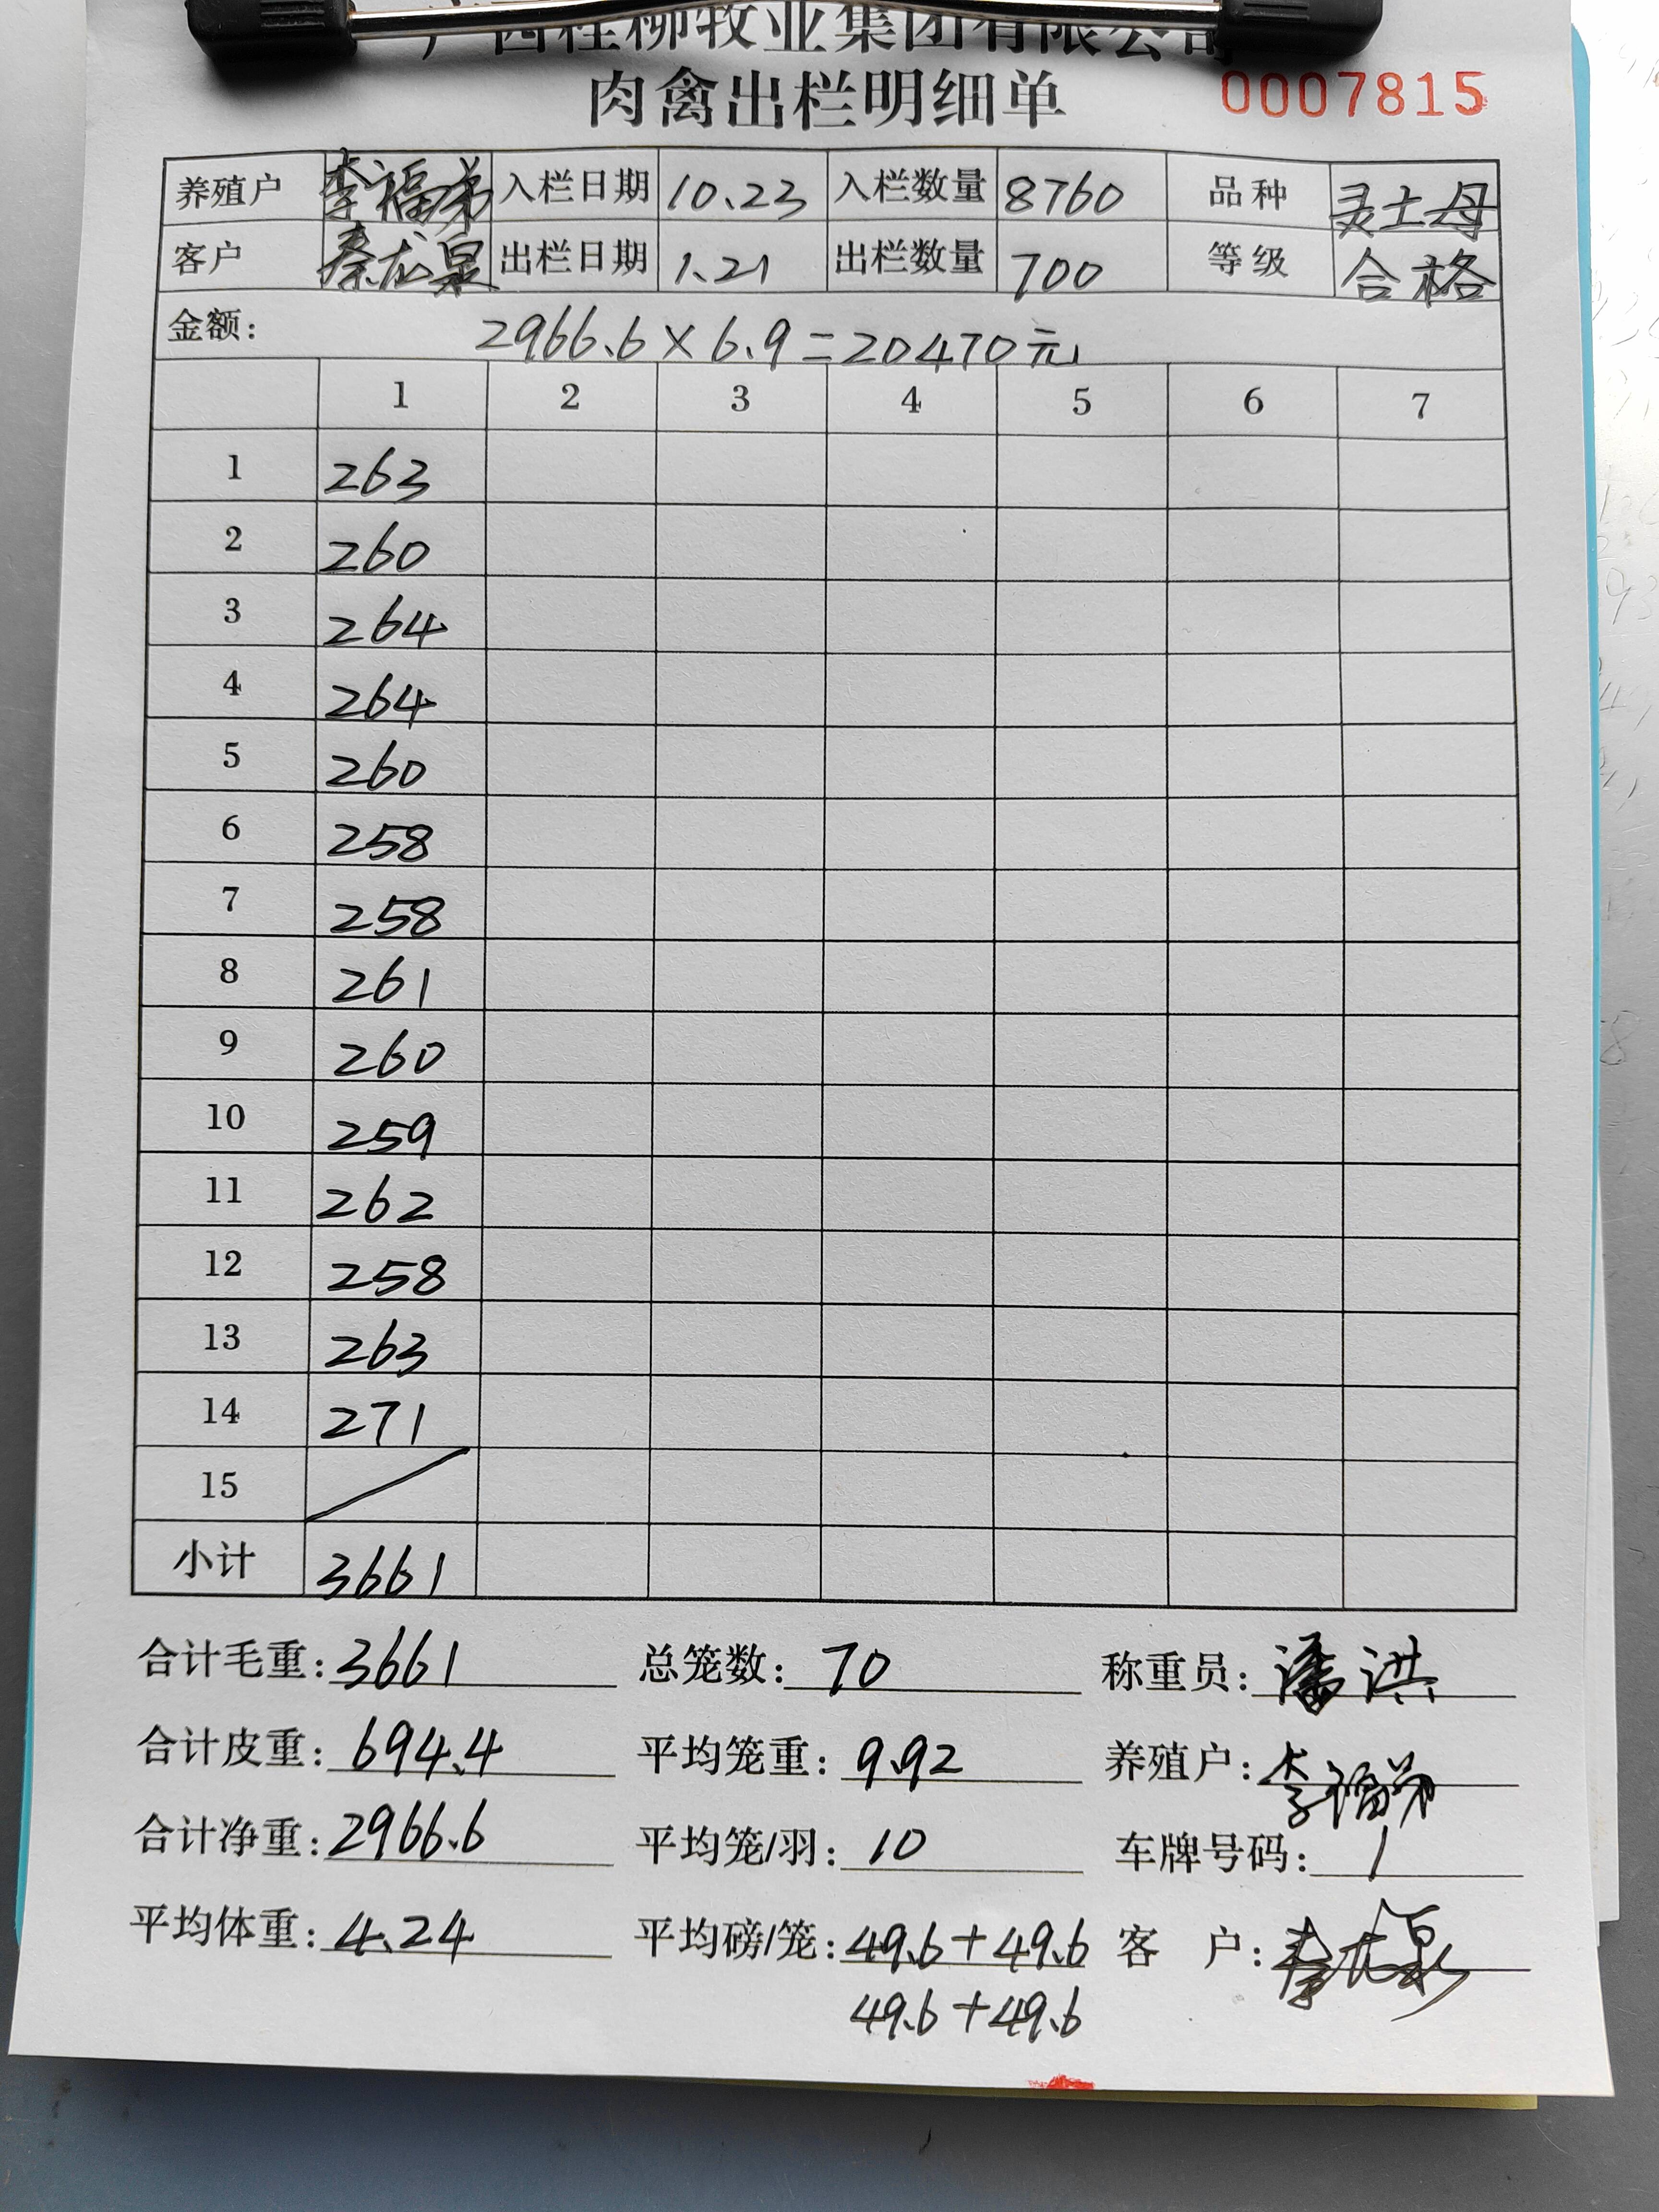 广西桂柳牧业集团有限公司
肉禽出栏明细单 0007815
养殖户 李福弟 入栏日期 10.23 入栏数量 8760 品种 灵土母
客户 秦龙泉 出栏日期 1.21 出栏数量 700 等级 合格
金额: 2966.6×6.9=20470元
1 2 3 4 5 6 7
1 263
2 260
3 264
4 264
5 260
6 258
7 258
8 261
9 260
10 259
11 262
12 258
13 263
14 271
15
小计 3661
合计毛重: 3661 总笼数: 70 称重员: 潘洪
合计皮重: 694.4 平均笼重: 9.92 养殖户: 李福弟
合计净重: 2966.6 平均笼/羽: 10 车牌号码: 1
平均体重: 4.24 平均磅/笼: 49.6+49.6 客 户: 秦龙泉
49.6+49.6